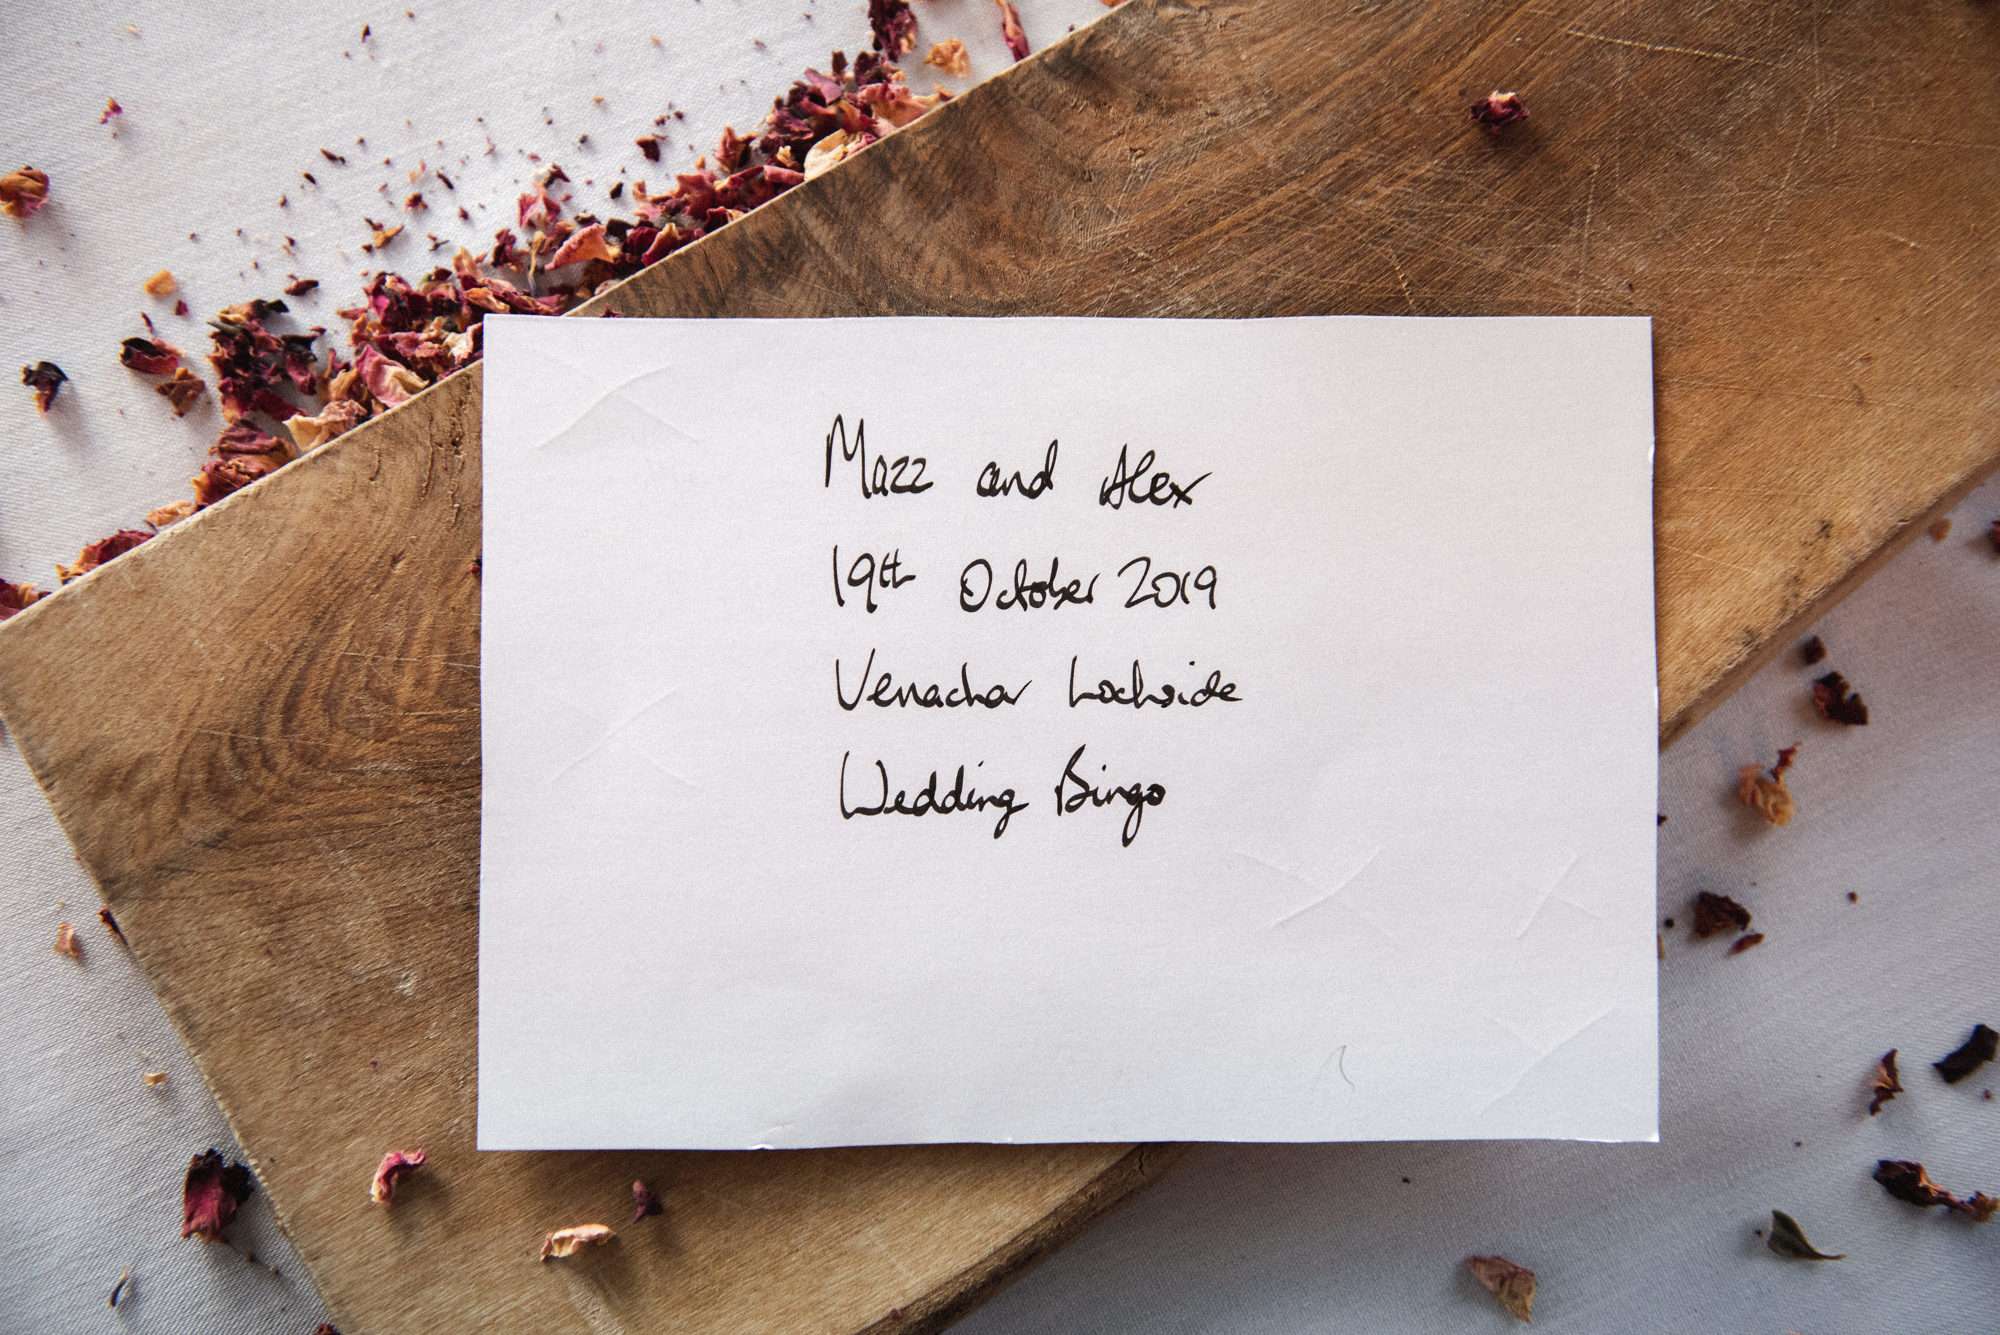 Mazz and Alex
19th October 2019
Venachar Lochside
Wedding Bingo